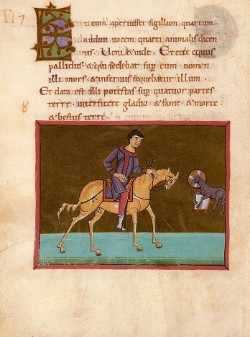 Et cum aperuisset sigillum quartum
audivi vocem quarti animalis dicen
tis. Veni & vide. Et ecce equus
pallidus & qui sedebat sup eum nomen
illi mors & infernus sequebatur illum.
Et data est illi potestas sup quatuor partes
terre interficere gladio & fame & morte
& bestiis terre.